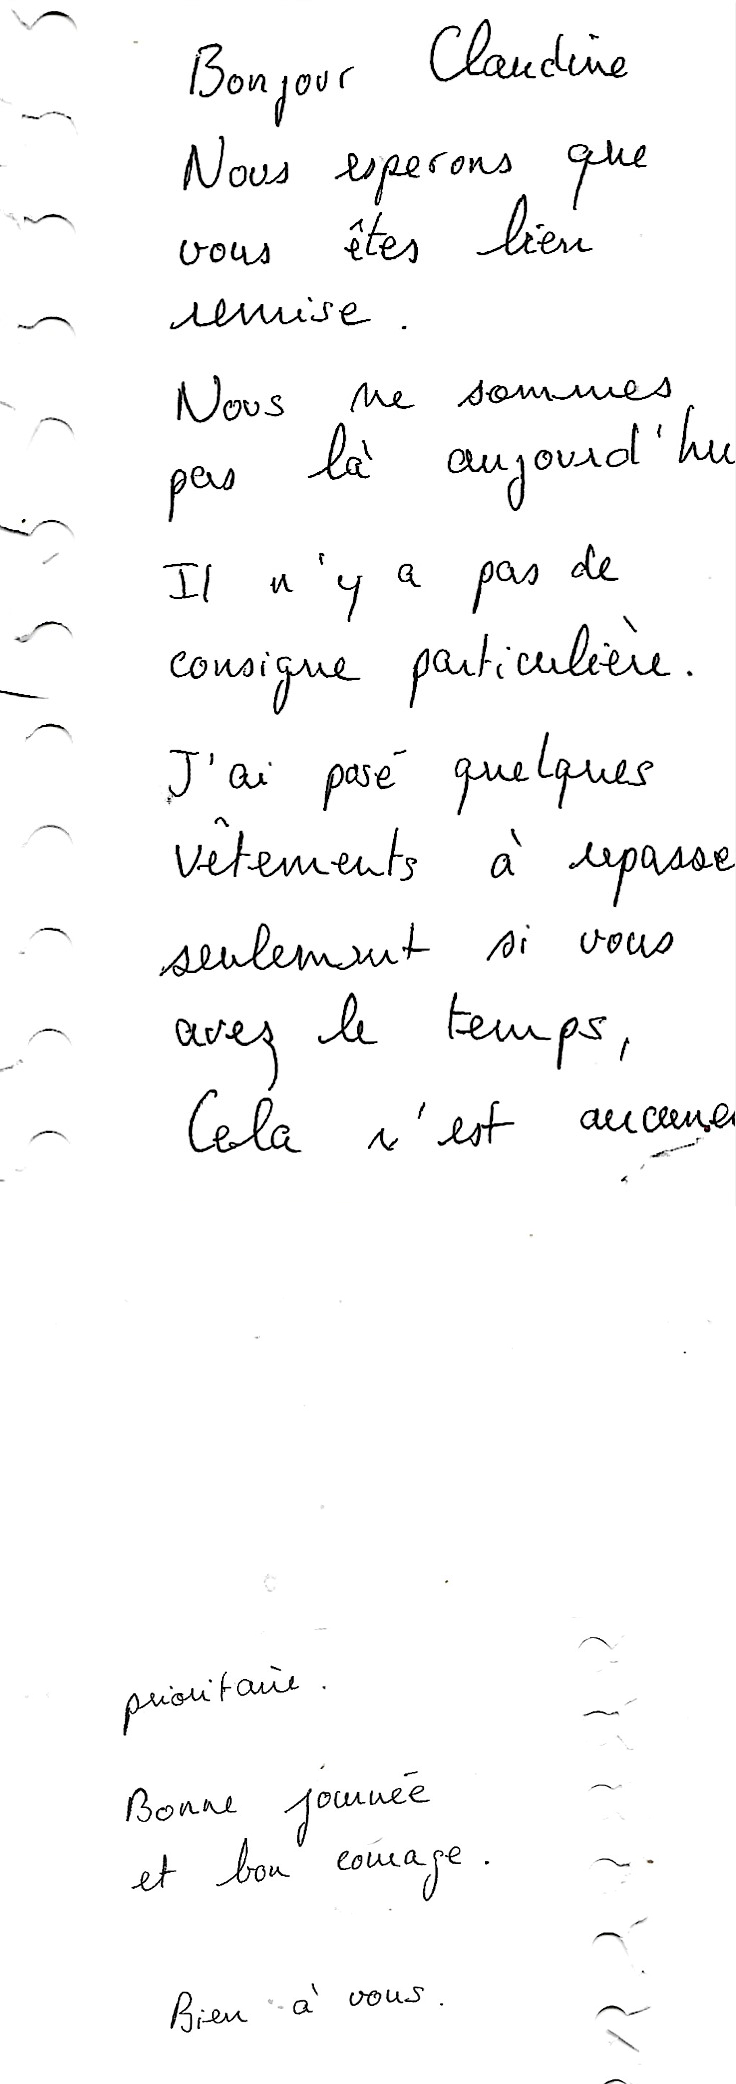 Bonjour Claudine
Nous esperons que
vous êtes bien
remise.
Nous ne sommes
pas là aujourd'hu
Il n'y a pas de
consigne particulière.
J'ai posé quelques
vêtements à repasse
seulement si vous
avez le temps,
Cela n'est aucune
prioritaire.
Bonne journée
et bon courage.
Bien à vous.